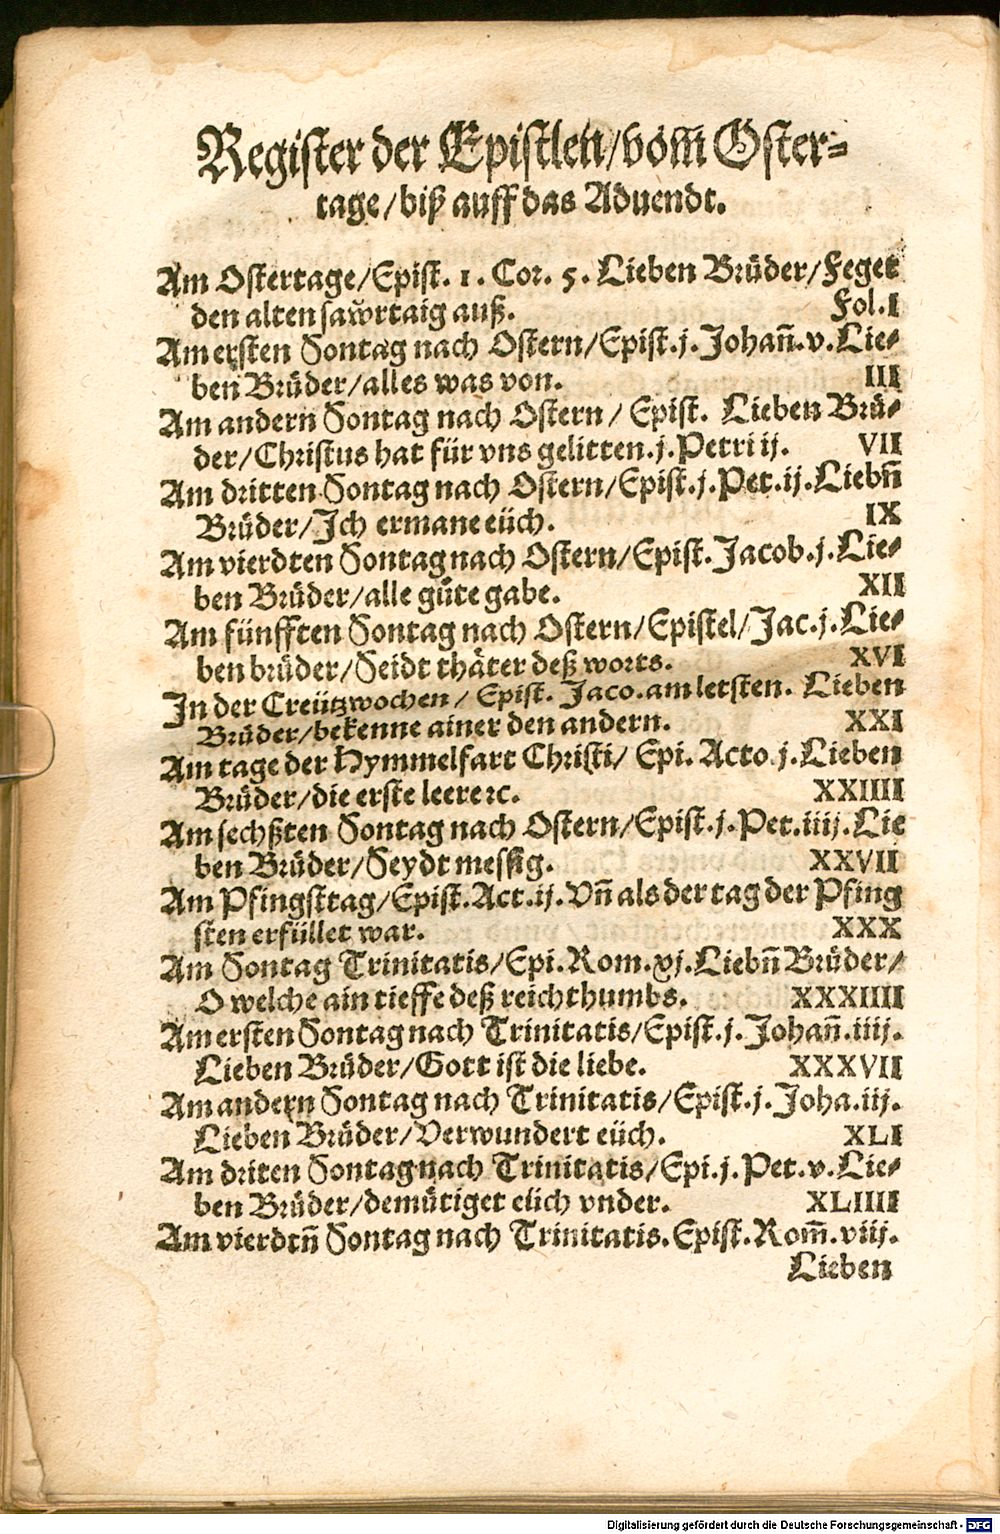 Register der Epistlen/vom̃ Oster-
tage/biß auff das Aduendt.
Am Ostertage/Epist. 1. Cor. 5. Lieben Brüder/Feget
den alten sawrtaig auß. Fol.I
Am ersten Sontag nach Ostern/Epist.j.Johañ.v.Lie-
ben Brüder/alles was von. III
Am andern Sontag nach Ostern/ Epist. Lieben Brü-
der/Christus hat für vns gelitten.j.Petri ij. VII
Am dritten Sontag nach Ostern/Epist.j.Pet.ij.Liebñ
Brüder/Ich ermane eüch. IX
Am vierdten Sontag nach Ostern/Epist.Jacob.j.Lie-
ben Brüder/alle gůte gabe. XII
Am fünfften Sontag nach Ostern/Epistel/Jac.j.Lie-
ben brüder/Seidt thäter deß worts. XVI
In der Creützwochen/ Epist. Jaco.am letsten. Lieben
Brüder/bekenne ainer den andern. XXI
Am tage der Hymmelfart Christi/ Epi. Acto.j.Lieben
Brüder/die erste leere ꝛc. XXIIII
Am sechßten Sontag nach Ostern/Epist.j.Pet.iiij.Lie
ben Brüder/Seydt messig. XXVII
Am Pfingsttag/Epist.Act.ij.Vñ als der tag der Pfing
sten erfüllet war. XXX
Am Sontag Trinitatis/Epi.Rom.xj.Liebñ Brüder/
O welche ain tieffe deß reichthumbs. XXXIIII
Am ersten Sontag nach Trinitatis/Epist.j.Johañ.iiij.
Lieben Brüder/Gott ist die liebe. XXXVII
Am andern Sontag nach Trinitatis/Epist.j.Joha.iij.
Lieben Brüder/Verwundert eüch. XLI
Am driten Sontag nach Trinitatis/Epi.j.Pet.v.Lie-
ben Brüder/demütiget eüch vnder. XLIIII
Am vierdtñ Sontag nach Trinitatis.Epist.Rom̃.viij.
Lieben
Digitalisierung gefördert durch die Deutsche Forschungsgemeinschaft - DFG